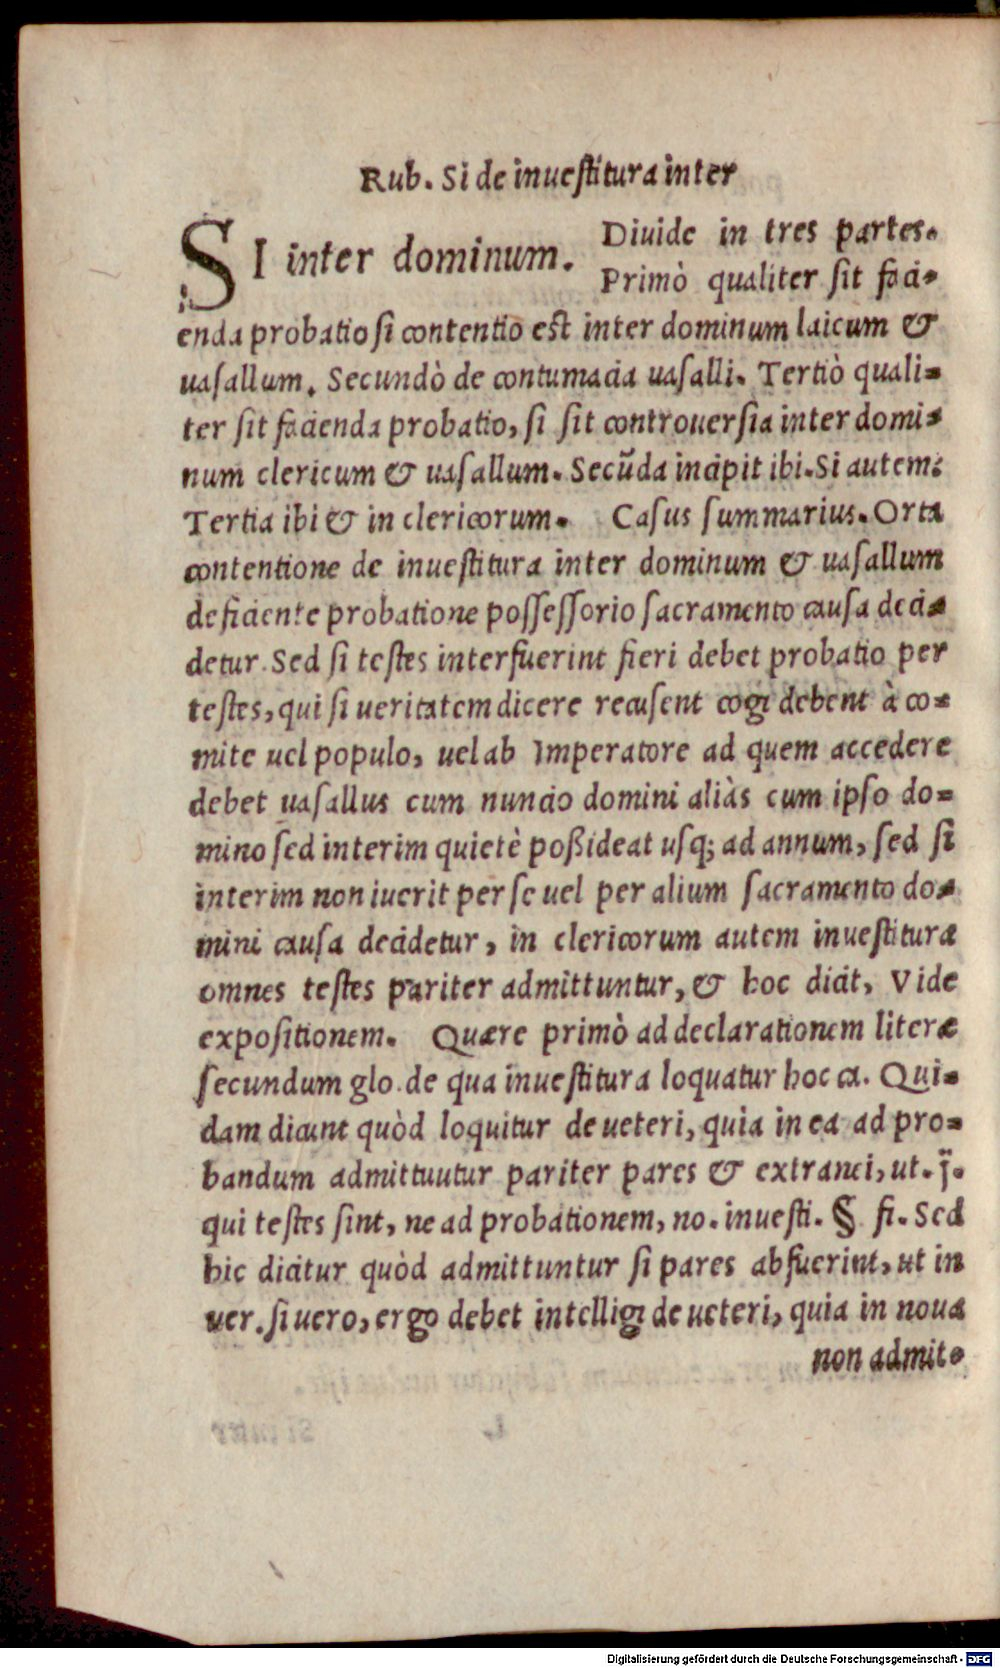 Rub. Si de inuestitura inter
SI inter dominum. Diuide in tres partes.
Primò qualiter sit faci-
enda probatio si contentio est inter dominum laicum &
uasallum. Secundò de contumacia uasalli. Tertiò quali-
ter sit facienda probatio, si sit controuersia inter domi-
num clericum & uasallum. Secũda incipit ibi. Si autem:
Tertia ibi & in clericorum. Casus summarius. Orta
contentione de inuestitura inter dominum & uasallum
deficiente probatione possessorio sacramento causa deci-
detur. Sed si testes interfuerint fieri debet probatio per
testes, qui si ueritatem dicere recusent cogi debent à co-
mite uel populo, uel ab Imperatore ad quem accedere
debet uasallus cum nuncio domini aliàs cum ipso do-
mino sed interim quietè poßideat usq; ad annum, sed si
interim non iuerit per se uel per alium sacramento do-
mini causa decidetur, in clericorum autem inuestitura
omnes testes pariter admittuntur, & hoc dicit, Vide
expositionem. Quære primò ad declarationem literæ
secundum glo. de qua inuestitura loquatur hoc ca. Qui-
dam dicunt quòd loquitur de ueteri, quia in ea ad pro-
bandum admittuutur pariter pares & extranei, ut. j̈.
qui testes sint, ne ad probationem, no. inuesti. § fi. Sed
hic dicitur quòd admittuntur si pares abfuerint, ut in
uer. si uero, ergo debet intelligi de ueteri, quia in noua
non admit-
Digitalisierung gefördert durch die Deutsche Forschungsgemeinschaft - DFG